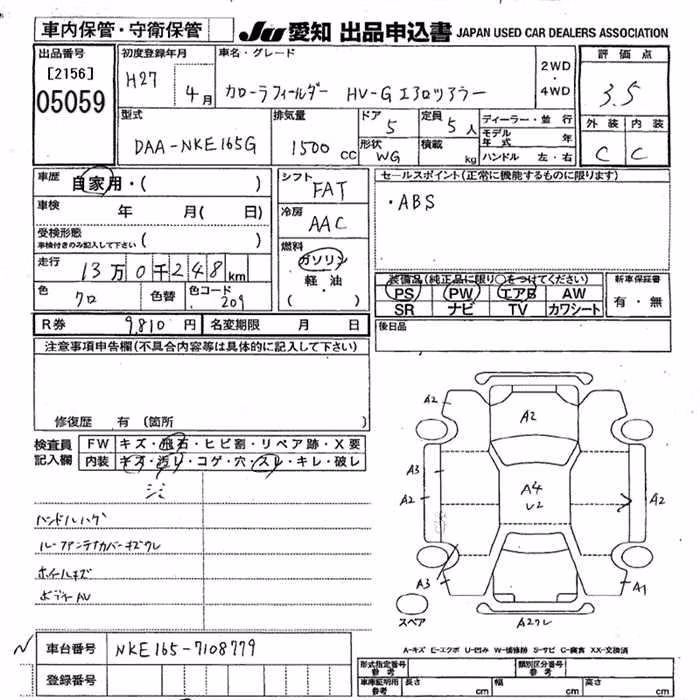 車内保管・守衛保管
JU 愛知 出品申込書 JAPAN USED CAR DEALERS ASSOCIATION
出品番号
[2156]
05059
初度登録年月
H27 4月
車名・グレード
カローラフィールダー HV-G エアロツアラー
2WD
・
4WD
評価点
3.5
外装 内装
C C
型式
DAA-NKE165G
排気量
1500 cc
ドア
5
定員
5人
形状
WG
積載
kg
ディーラー・並行
モデル年式 年
ハンドル 左・右
車歴
自家用・( )
車検
年 月( 日)
受検形態
車検付きのみ記入して下さい ( )
走行
13万0千248km
色
クロ
色替
色コード
209
シフト
FAT
冷房
AAC
燃料
ガソリン
軽油
( ・ )
セールスポイント(正常に機能するものに限ります)
・ABS
装備品(純正品に限り○をつけてください)
PS PW エアB AW
SR ナビ TV カワシート
新車保証書
有・無
R券 9,810円 名変期限 月 日
後日品
注意事項申告欄(不具合内容等は具体的に記入して下さい)
修復歴 有 (箇所 )
検査員
記入欄
FW キズ・飛石・ヒビ割・リペア跡・X要
内装 キズ・汚レ・コゲ・穴・スレ・キレ・破レ
シミ
ハンドルハゲ
ルーフアンテナカバーキズワレ
ホイールキズ
ボディーAV
A2
A2
A3
A2
A4
U2
A2
A3
A1
A2ワレ
スペア
A-キズ E-エクボ U-凹み W-補修跡 S-サビ C-腐食 XX-交換済
車台番号 NKE165-7108779
登録番号
形式指定番号
参考
類別区分番号
参考
車庫証明用
参考
長さ cm 幅 cm 高さ cm